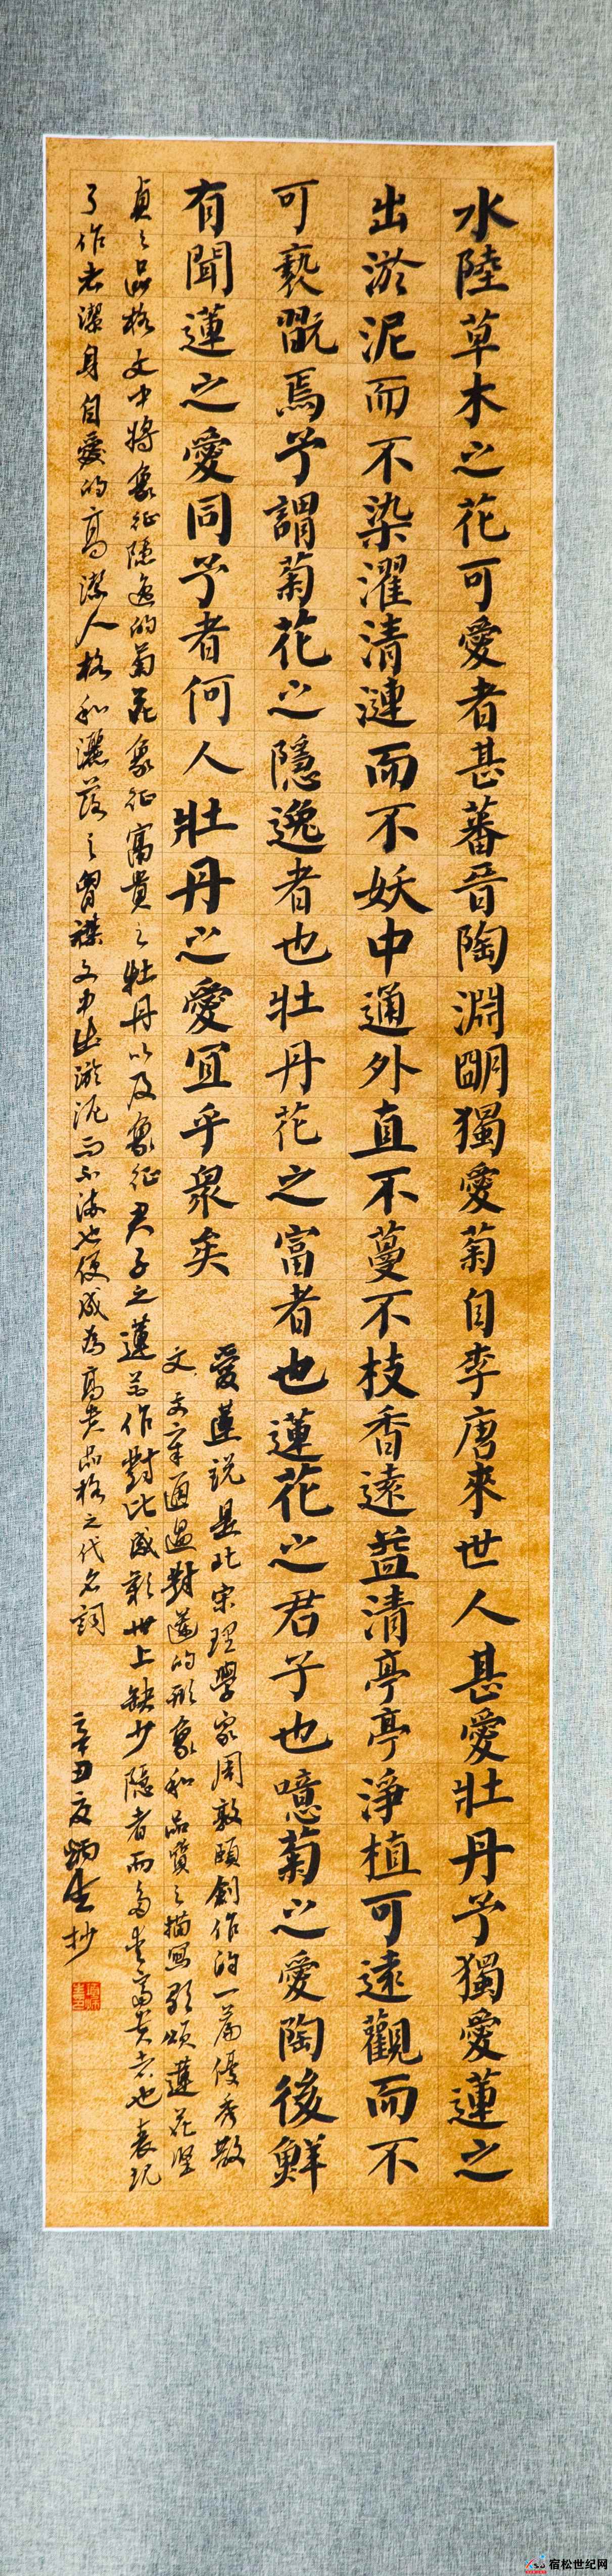 水陸草木之花可愛者甚蕃晉陶淵明獨愛菊自李唐來世人甚愛牡丹予獨愛蓮之
出淤泥而不染濯清漣而不妖中通外直不蔓不枝香遠益清亭亭淨植可遠觀而不
可褻翫焉予謂菊花之隱逸者也牡丹花之富者也蓮花之君子也噫菊之愛陶後鮮
有聞蓮之愛同予者何人牡丹之愛宜乎眾矣
愛蓮說是北宋理學家周敦頤創作的一篇優秀散
文文章通過對蓮的形象和品質之描寫歌頌蓮花堅
貞之品格文中將象征隱逸的菊花象征富貴之牡丹以及象征君子之蓮並作對比感歎世上缺少隱者而多貪富貴者也表現
了作者潔身自愛的高潔人格和灑落之胸襟文中出淤泥而不染也便成為高貴品格之代名詞
辛丑夏炳生抄
宿松世纪网